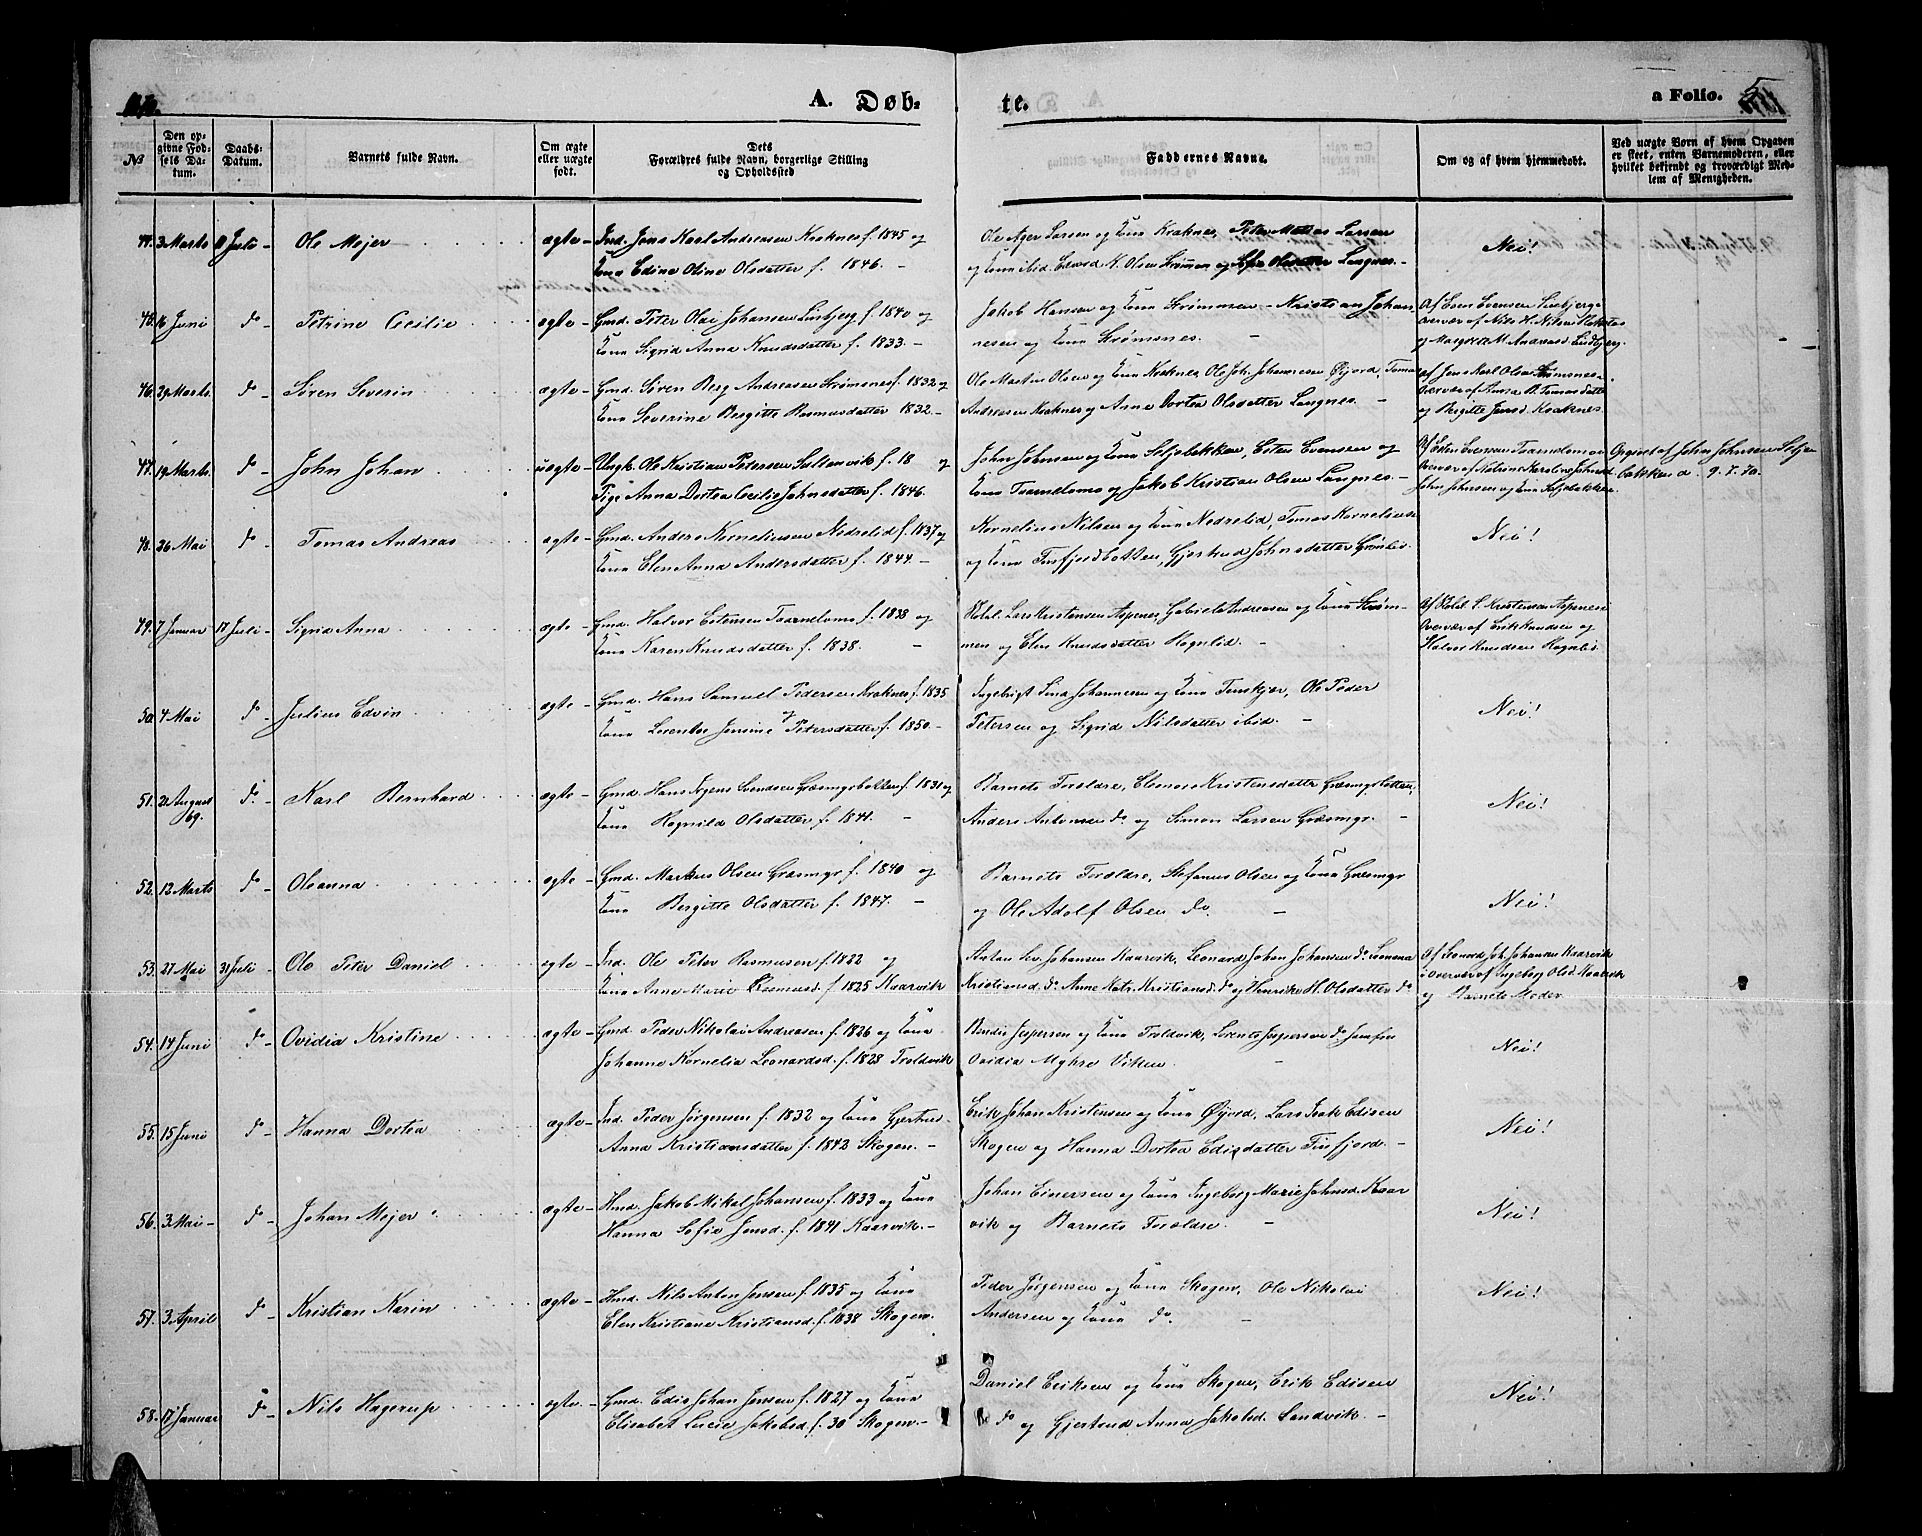 A. Døb-
te.
a Folio. 5
No
Den opgivne Fødsels Datum.
Daabs-Datum.
Barnets fulde Navn.
Om ægte eller uægte født.
Dets Forældres fulde Navn, borgerlige Stilling og Opholdssted
Faddernes Navne.
Om og af hvem hjemmedøbt.
Ved uægte Børn af hvem Opgaven er skeet, enten Barnemoderen, eller hvilket bekjendt og troværdigt Medlem af Menigheden.
3 Marts Juli - Ole Mejer ægte - Ind. Jens Karl Andreasen Kraknes f. 1845 og
Kona Edine Oline Olsdatter f. 1846. -
Ole Ager Larsen og Kona Kraknes, Peter Mattias Larsen
og Kona ibid. Edvard N. Olsen Strømmen og Olsdatter Langnes. -
Nei!
45. 16 Juni do - Petrine Cecilie ægte - Gmd. Peter Olai Johansen Linbjerg f. 1840 og
Kona Sigrid Anna Knudsdatter f. 1833. -
Jakob Hansen og Kona Strømmen - Kristian Johan-
nesen og Kona Strømsnes. -
Af Sven Svensen Linbjerg i
Overvær af Nils H. Nilsen
og Margrete M. Andreasd. Lindbjerg.
46. 29 Marts do - Sören Severin ægte - Gmd. Sören Berg Andreasen Strömsnes f. 1832 og
Kona Severine Bergitte Rasmusdatter 1832. -
Ole Martin Olsen og Kona Kraknes, Ole Joh. Johannesen Øijord, Tomas
Andreasen Kraknes og Anne Dortea Olsdatter Langnes. -
af Jens Karl Olsen Strømsnes i
Overvær af Anna B. Tomasdatter
og Birgitte Jensd. Kraknes.
47. 19 Marts do - John Johan uægte - Ungk. Ole Kristian Petersen Sultenvik f. 18 og
Pige Anna Dortea Cecilie Johnsdatter f. 1846.
John Johnsen og Kona Seljebakken, Esten Evensen og
Kona Taarneloms og Jakob Kristian Olsen Langnes -
Af Esten Evensen Taarnelom i
Overvær af Katrine Karoline Johnsd.
John Johnsen og Kona Seljebakken.
Opgivet af John Johnsen Selje-
bakken d. 9. 7. 70.
48. 26 Mai do - Tomas Andreas ægte - Gmd. Anders Korneliussen Nedrelid f. 1837 og
Kona Elen Anna Andersdatter f. 1844. -
Kornelius Nilsen og Kona Nedrelid, Tomas Korneliusen
og Kona Tinfjordbotten, Gjertrud Johnsdatter Grønlid.
Nei!
49. 7 Januar 17 Juli - Sigrid Anna ægte - Gmd. Halvor Estensen Taarneloms f. 1838 og
Kona Karen Knudsdatter f. 1838. -
Lars Kristensen Aspenes, Gabriel Andreasen og Kona Strøm-
men og Elen Knudsdatter Hognlid. -
Af L. Kristensen Aspenes i
Overvær af Erik Knudsen og
Halvor Knudsen Hognlid
50. 4 Mai do - Julius Edvin ægte - Gmd. Hans Samuel Pedersen Kraknes f. 1835
og
Kona Lorentse Jensine Petersdatter f. 1850. -
Ingebrigt Johannesen og Kona Finskjær, Ole Peder
Petersen og Sigrid Nilsdatter ibid. -
Nei!
51. 21 August 69. do - Karl Bernhard ægte - Gmd. Hans Jogens Svendsen Græsmyrbotten f. 1831 og
Kona Rognild Olsdatter f. 1841. -
Barnets Forældre, Elenor Kristensdatter Græsmyrbotten,
Anders Antonsen do og Simon Larsen Græsmyr. -
Nei!
52. 12 Marts do - Oleanna ægte - Gmd. Markus Olsen Græsmyr f. 1840 og
Kona Bergitte Olsdatter f. 1847. -
Barnets Forældre, Stefanus Olsen og Kona Græsmyr
og Ole Adolf Olsen do. -
Nei!
53. 27 Mai 31 Juli - Ole Peter Daniel egte - Ind. Ole Peter Rasmusen f. 1822 og
Kona Anne Marie Rasmusd. f. 1825 Kaarvik
Anton Johansen Kaarvik, Leonard Johan Johansen do Leonena
Kristiansd. do. Anne Katr. Kristiansd. do og Henrikke H. Olsdatter do
Af Leonard Joh. Johansen Kaarvik
i Overvær af Ingeborg Olsd. Kaarvik
og Barnets Moder.
54. 14 Juni do - Ovidia Kristine ægte - Gmd. Peder Nikolai Andreasen f. 1826 og Kona
Johanne Kornelia Leonardsd. f. 1828 Troldvik
Bendix Jespersen og Kona Troldvik, Lorents Jespersen do Jomfru
Ovidia Myhre Viken.
Nei!
55. 15 Juni do - Hanna Dortea ægte - Ind. Peder Jørgensen f. 1832 og Kona Gjertrud
Anna Kristiansdatter f. 1842 Skogen. -
Erik Johan Kristensen og Kona Øijord, Lars Isak Edisen
Skogen og Hanna Dortea Edisdatter Tinfjord. -
Nei!
56. 3. Mai - do - Johan Mejer ægte - Hmd. Jakob Mikal Johansen f. 1833 og Kona
Hanna Sofie Jensd. f. 1841 Kaarvik. -
Johan Einersen og Kona Ingeborg Marie Johnsd. Kaar
vik og Barnets Forældre. -
Nei!
57. 3 April do - Kristian Karin ægte - Hmd. Nils Anton Jensen f. 1835 og Kona
Elen Kristiane Kristiansd. f. 1838 Skogen.
Peder Jørgensen og Kona Skogen, Ole Nikolai
Andersen og Kona do. -
Nei!
58. 17 Januar do - Nils Hagerup ægte - Gmd. Edis Johan Jensen f. 1827 og Kona
Elisabet Lucie Jakobsd. f. 30 Skogen. -
Daniel Eriksen og Kona Skogen, Erik Edisen
do og Gjertrud Anna Jakobsd. Sandvik. -
Nei!